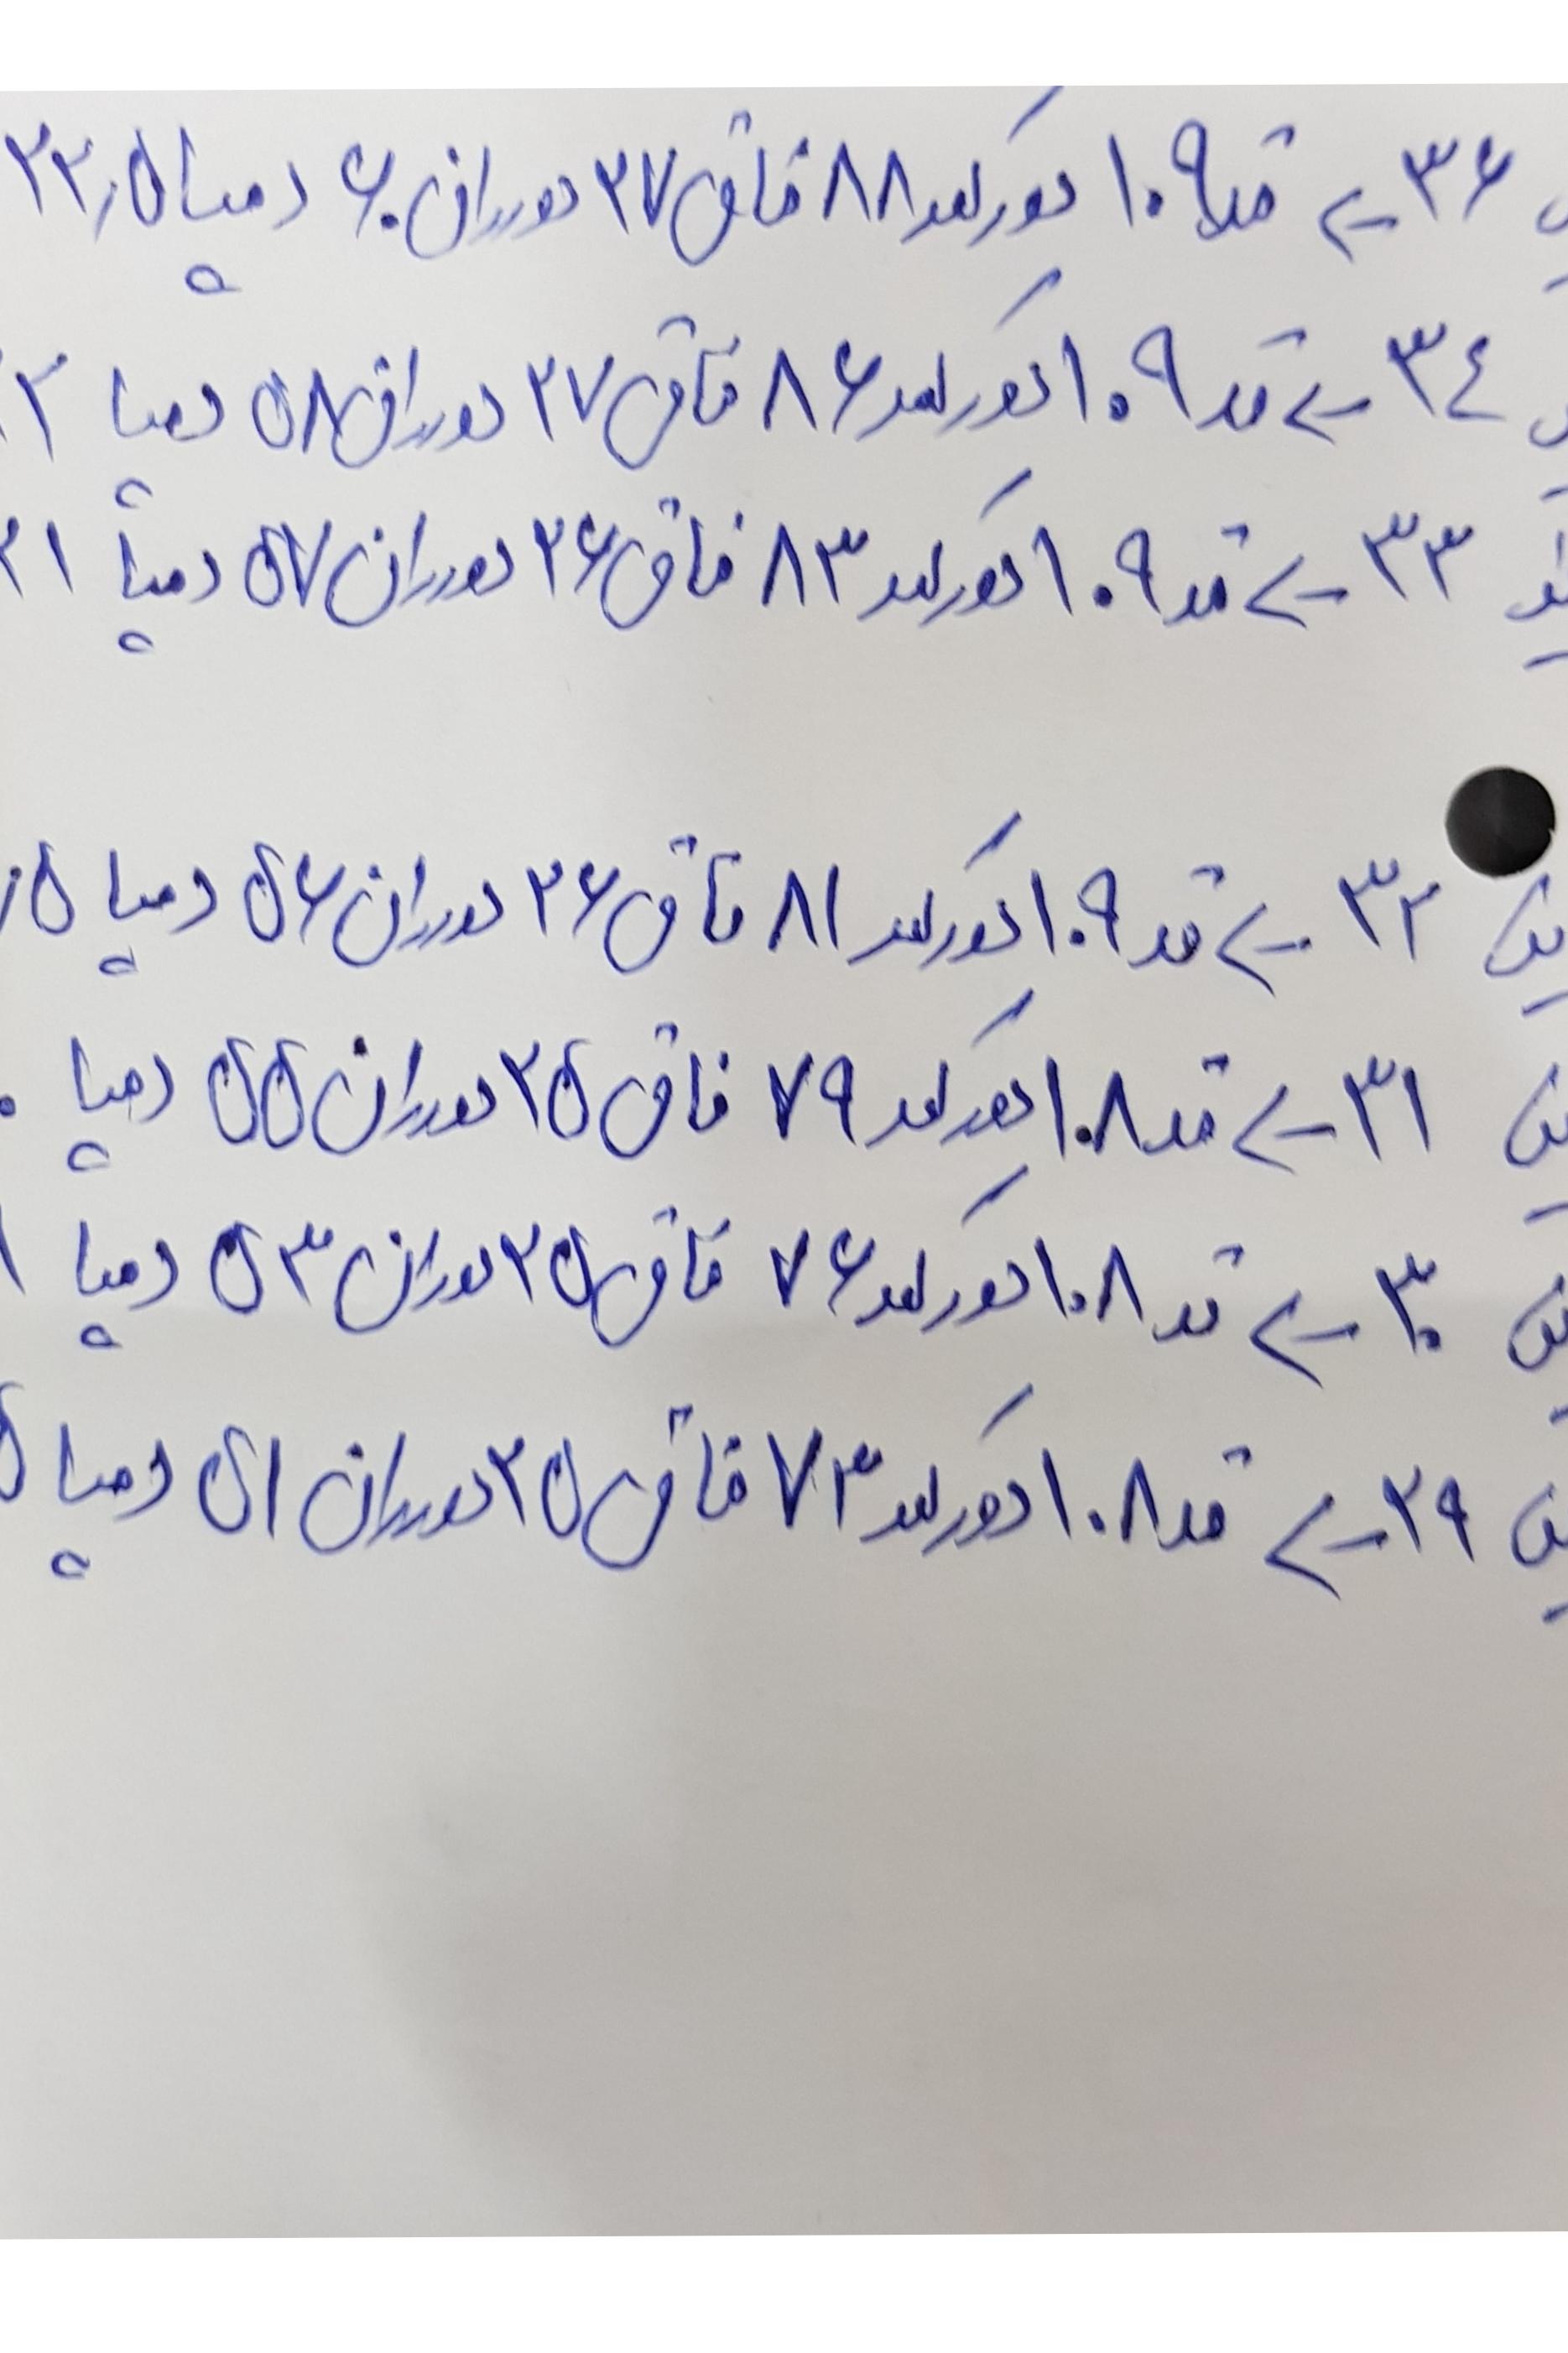 ۳۶ ← قد ۱۰۹ دورکمر ۸۸ فاق ۲۷ دور ران ۶۰ دمپا ۲۳٫۵
۳۴ ← قد ۱۰۹ دورکمر ۸۶ فاق ۲۷ دور ران ۵۸ دمپا
۳۳ ← قد ۱۰۹ دورکمر ۸۳ فاق ۲۶ دور ران ۵۷ دمپا
۳۲ ← قد ۱۰۹ دورکمر ۸۱ فاق ۲۶ دور ران ۵۶ دمپا
۳۱ ← قد ۱۰۸ دورکمر ۷۹ فاق ۲۵ دور ران ۵۵ دمپا
۳۰ ← قد ۱۰۸ دورکمر ۷۶ فاق ۲۵ دور ران ۵۳ دمپا
۲۹ ← قد ۱۰۸ دورکمر ۷۳ فاق ۲۵ دور ران ۵۱ دمپا